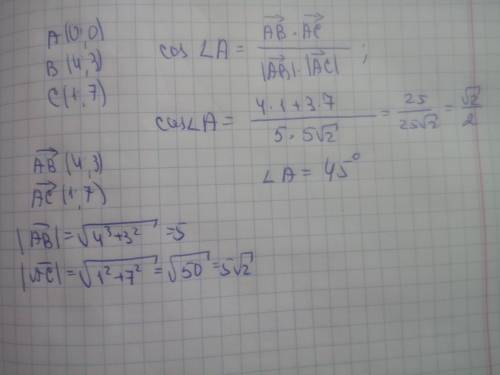 A(0;0)
B(4,3)
C(1,7)
cos∠A = (AB⃗ · AC⃗) / (|AB⃗| · |AC⃗|) ;
cos∠A = (4·1+3·7) / (5·5√2) = 25 / (25√2) = √2 / 2
∠A = 45°
AB⃗ (4,3)
AC⃗ (1,7)
|AB⃗| = √(4³+3²) = 5
|AC⃗| = √(1²+7²) = √50 = 5√2